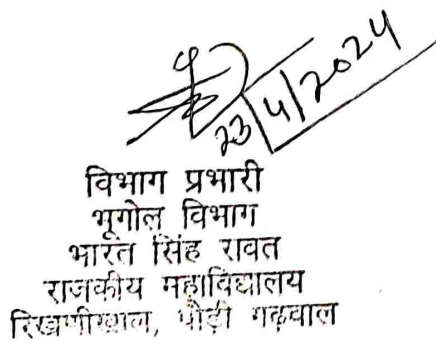 23/4/2024
विभाग प्रभारी
भूगोल विभाग
भारत सिंह रावत
राजकीय महाविद्यालय
रिखणीखाल, पौड़ी गढ़वाल